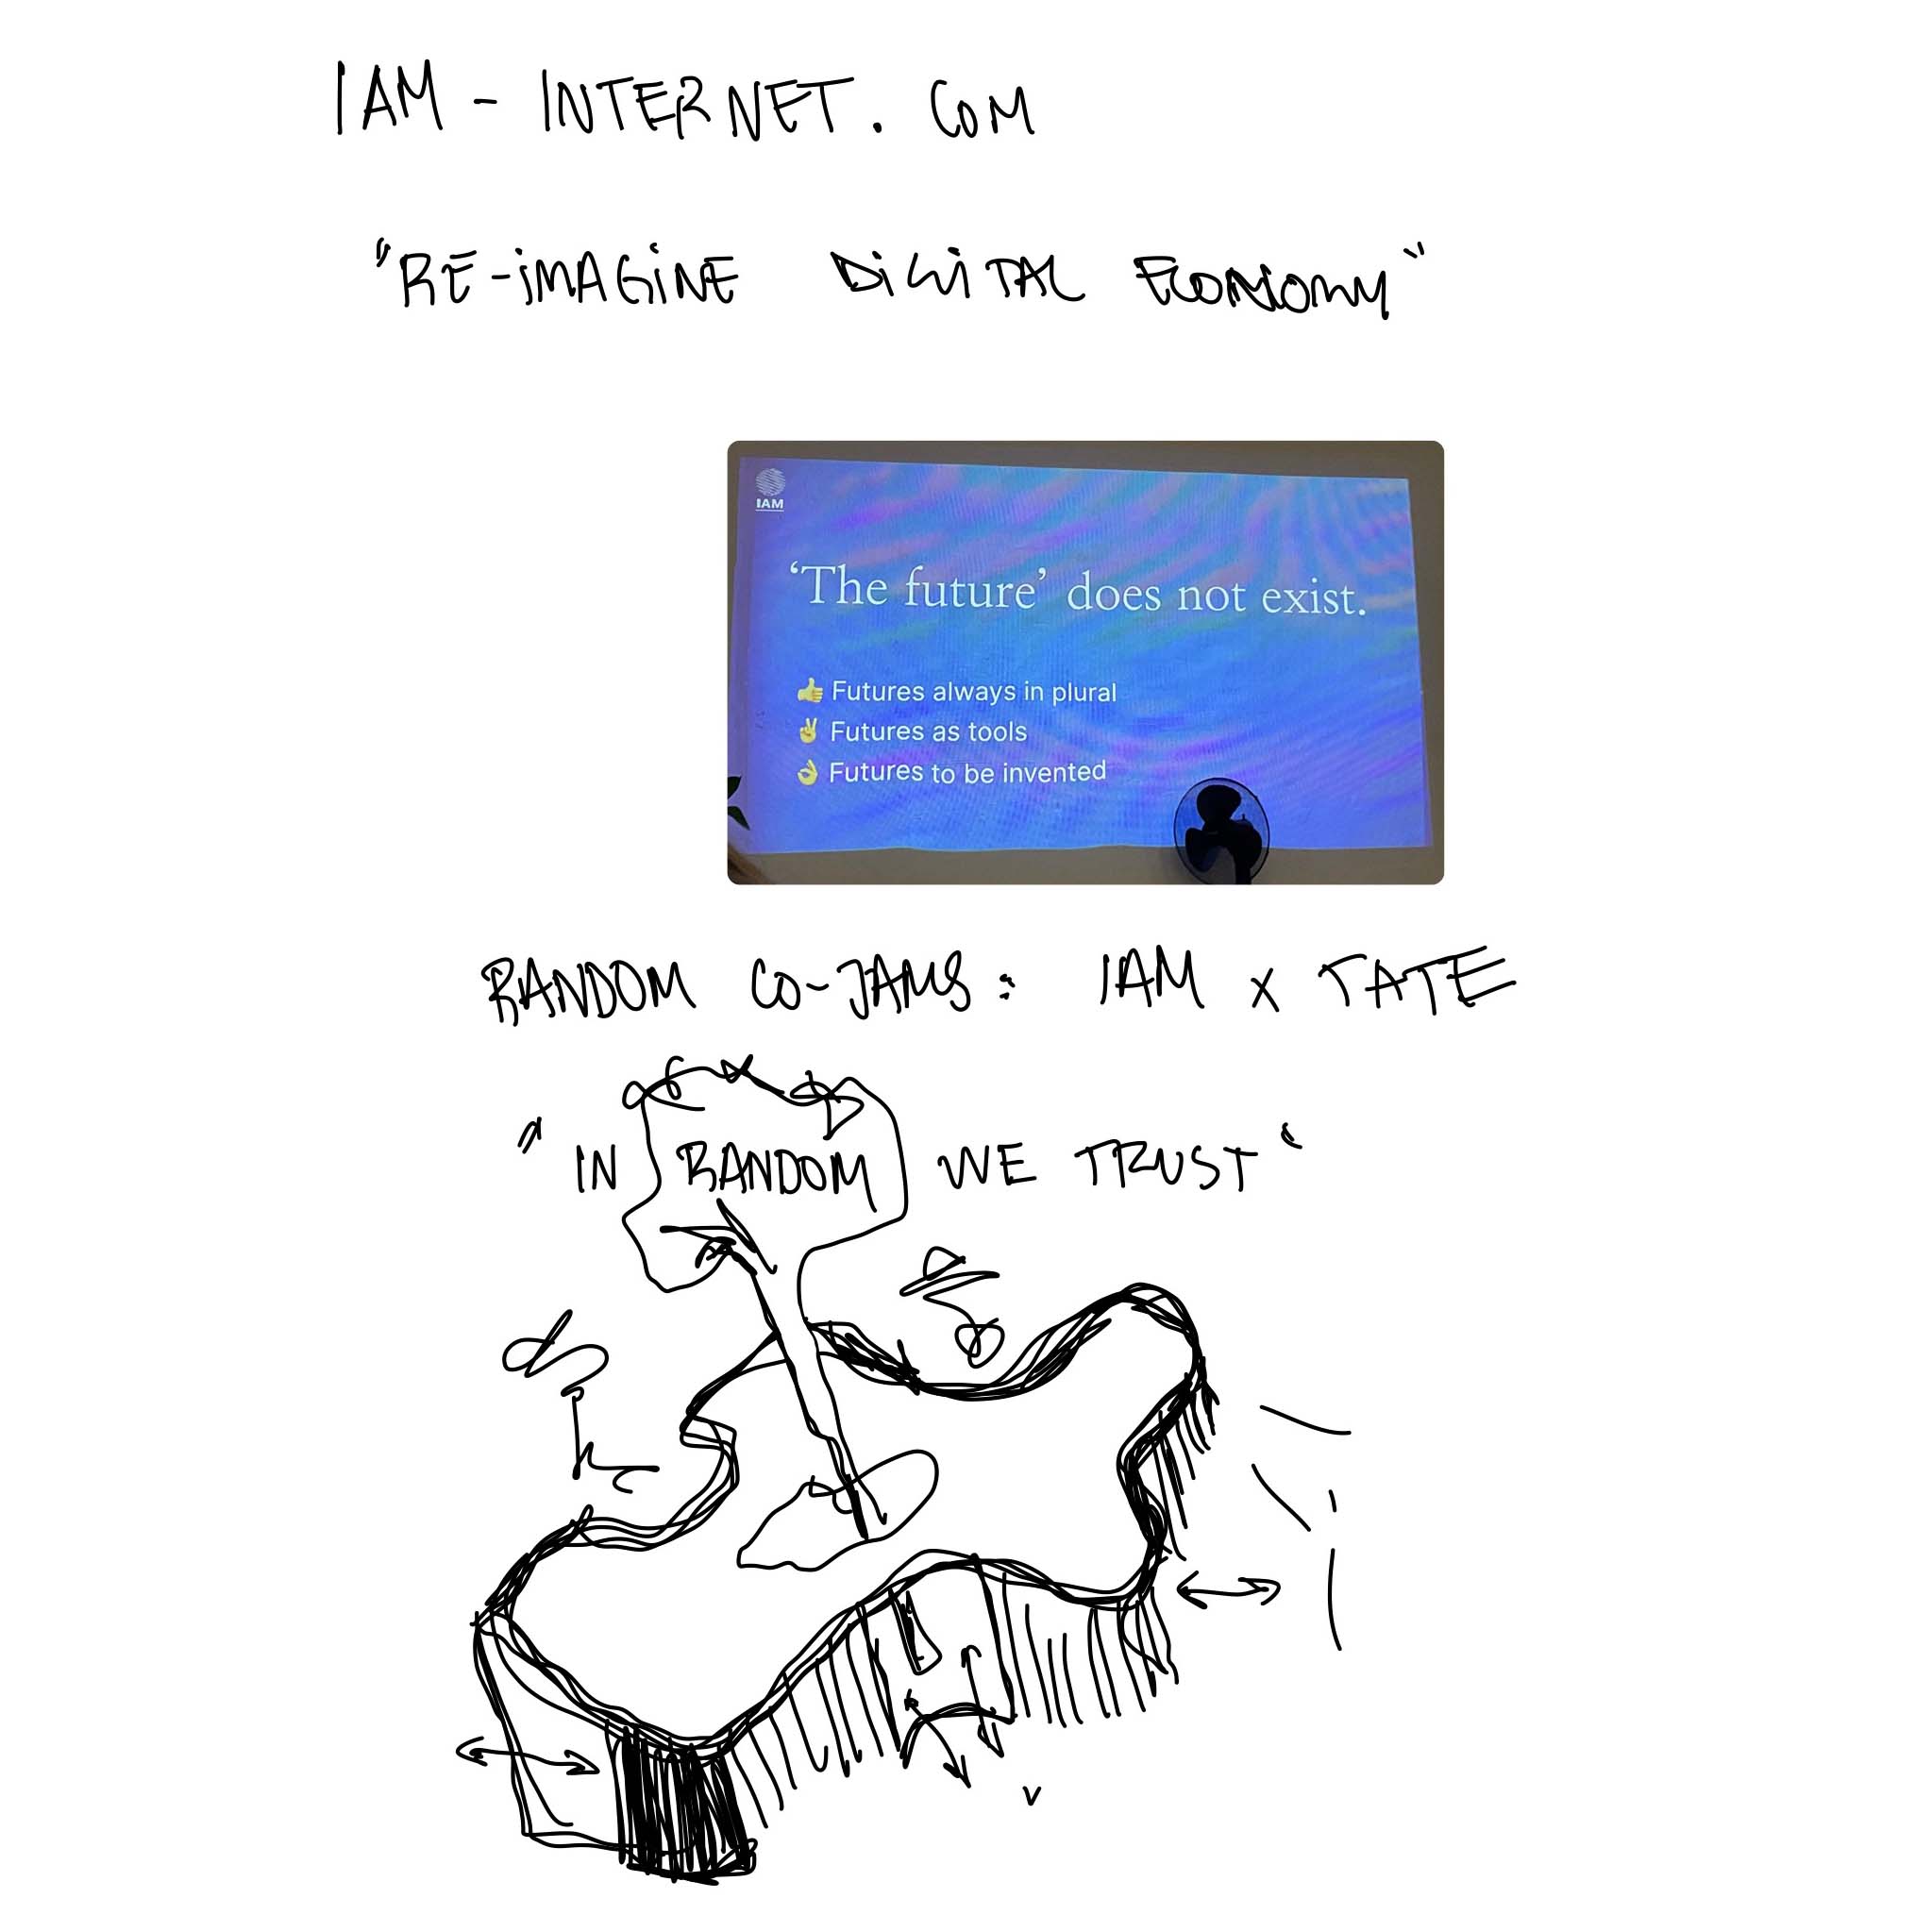 IAM - INTERNET. COM
"RE-iMAGiNE DiGiTAL ECONOMY"
IAM
‘The future’ does not exist.
👍 Futures always in plural
✌ Futures as tools
👌 Futures to be invented
RANDOM CO-JAMS: IAM x TATE
"IN RANDOM WE TRUST"